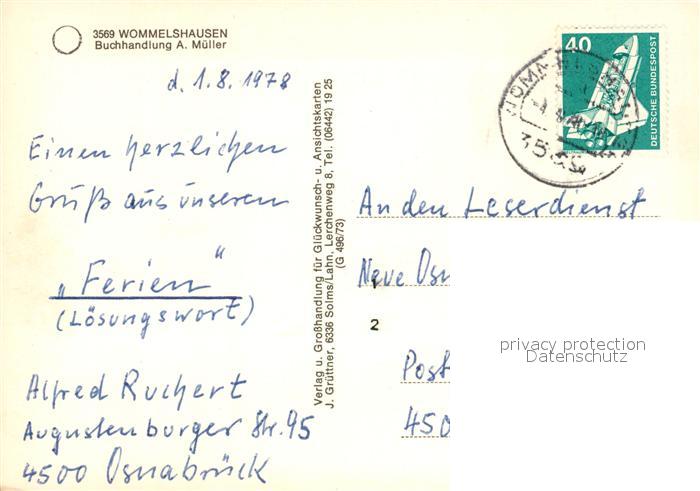 3569 WOMMELSHAUSEN
Buchhandlung A. Müller
d. 1.8.1978
Einen herzlichen
Gruß aus unseren
„Ferien“
(Lösungswort)
Alfred Ruchert
Augustenburger Str. 95
4500 Osnabrück
Verlag u. Großhandlung für Glückwunsch- u. Ansichtskarten
J. Grüttner, 6336 Solms/Lahn, Lerchenweg 8, Tel. (06442) 19 25
(G 496/73)
40
DEUTSCHE BUNDESPOST
An den Leserdienst
Neue Osn
1
2
Post
450
privacy protection
Datenschutz